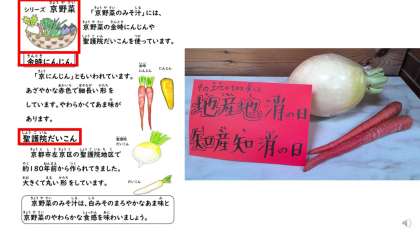 シリーズ 京野菜
「京野菜のみそ汁」には、
京野菜の金時にんじんや
聖護院だいこんを使っています。
金時にんじん
「京にんじん」ともいわれています。
あざやかな赤色で細長い形を
しています。やわらかくてあま味が
あります。
聖護院だいこん
京都市左京区の聖護院地区で
約180年前から作られてきました。
大きくて丸い形をしています。
京野菜のみそ汁は、白みそのまろやかなあま味と
京野菜のやわらかな食感を味わいましょう。
地産地消の日
知産知消の日